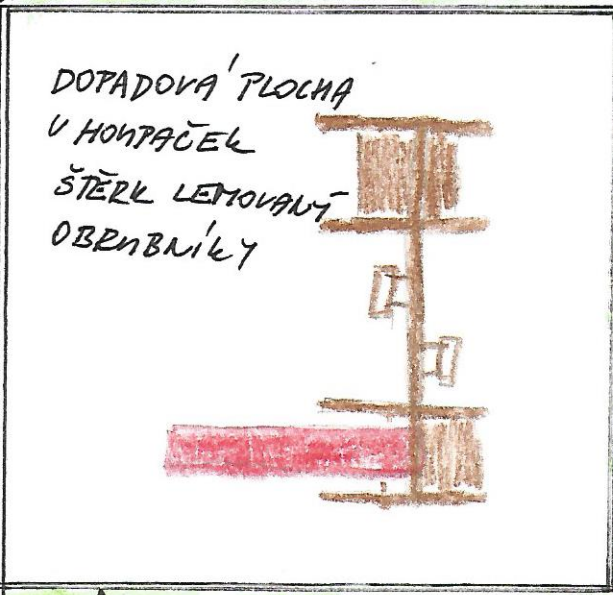 DOPADOVÁ PLOCHA
U HOUPAČEK
ŠTĚRK LEMOVANÝ
OBRUBNÍKY